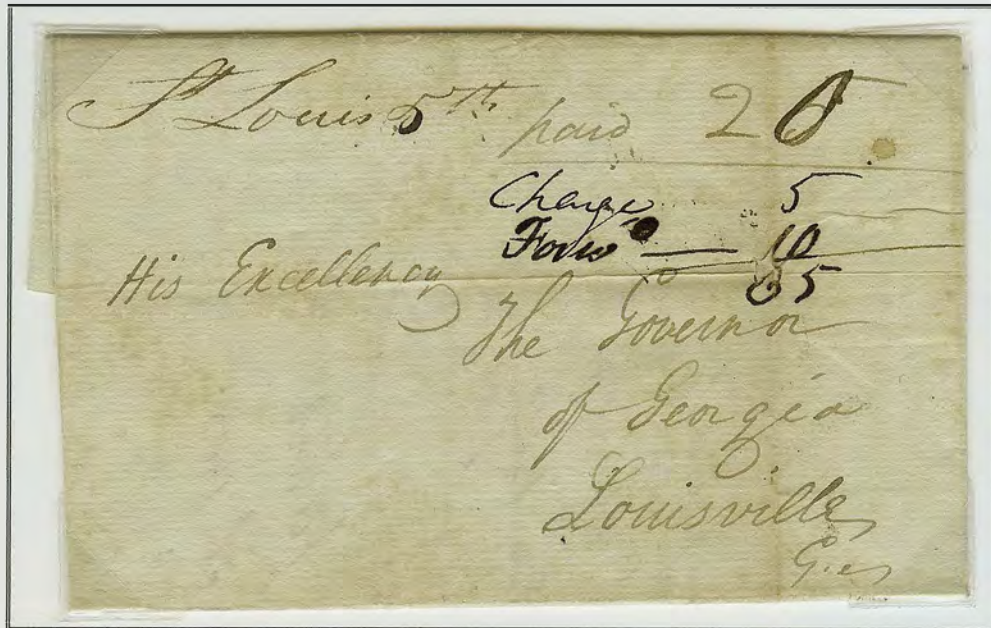 St Louis 5th paid 25
Charge 5
Forwd — 10
His Excellency
The Governor
of Georgia
Louisville